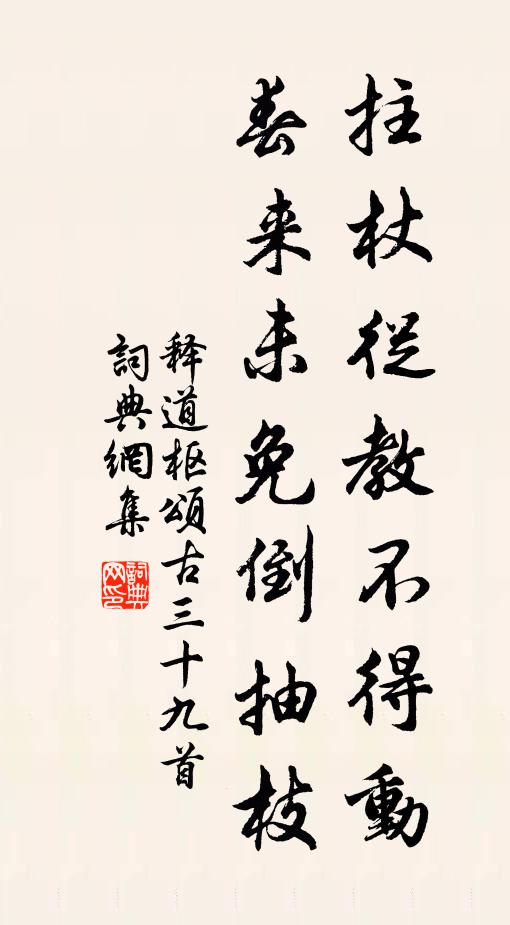 拄杖從教不得動
春来未免倒抽枝
释道枢頌古三十九首
詞典網集
詞典网印